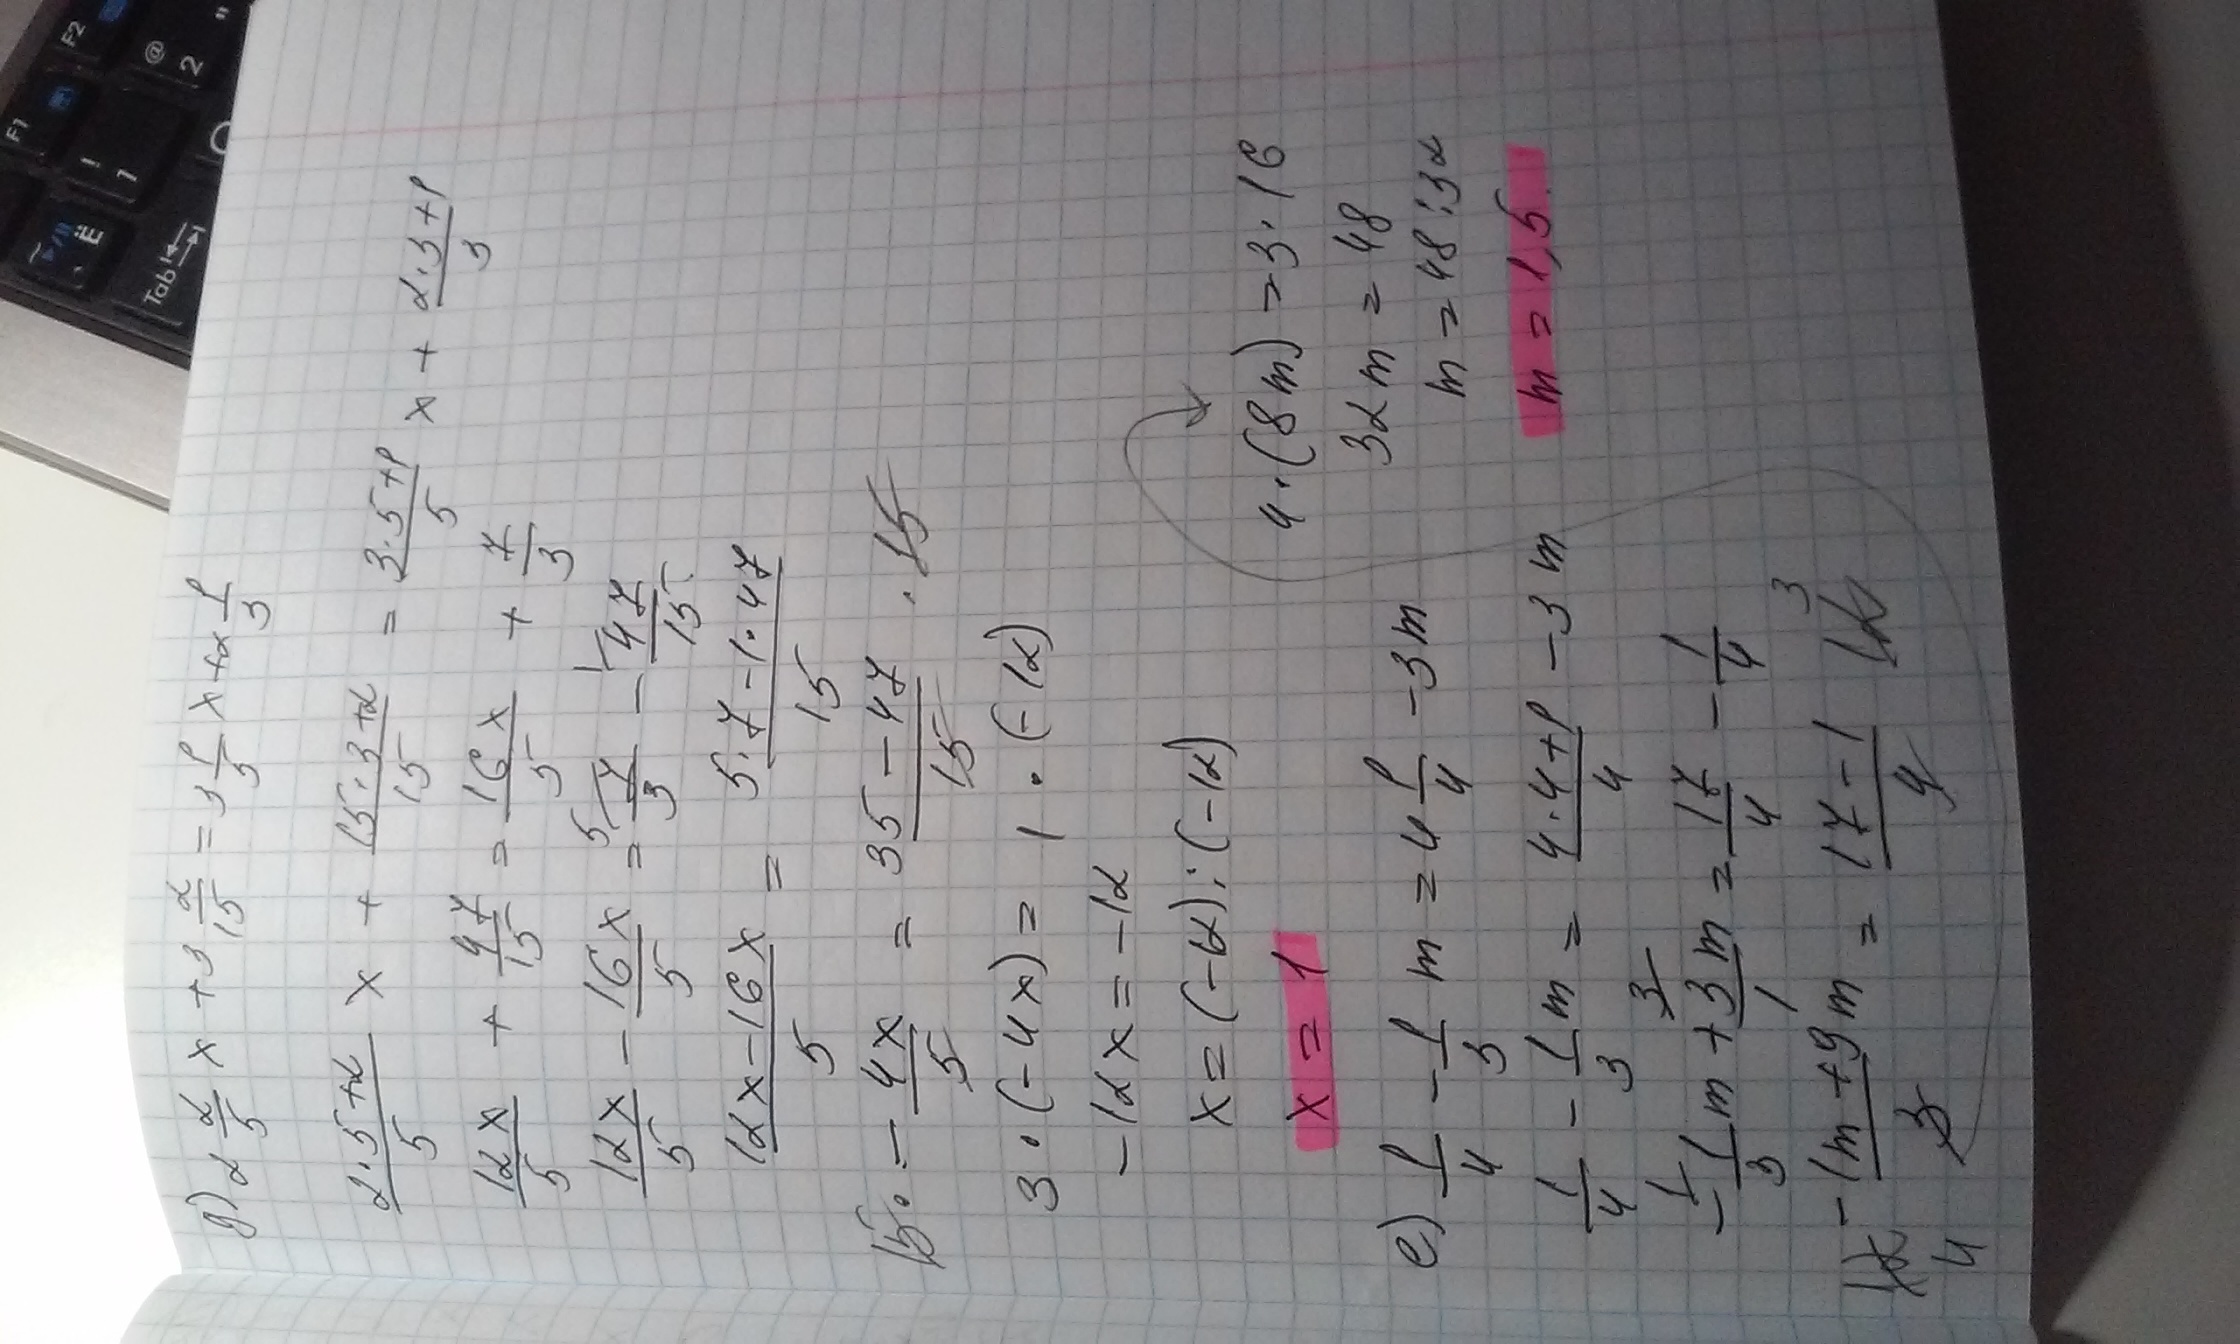 д) 2 2/5 x + 3 2/15 = 3 1/5 x + 2 1/3
(2·5+2)/5 x + (15·3+2)/15 = (3·5+1)/5 x + (2·3+1)/3
12x/5 + 47/15 = 16x/5 + 7/3
12x/5 - 16x/5 = 5 7/3 - 1 47/15
(12x-16x)/5 = (5·7-1·47)/15
15· - 4x/5 = (35-47)/15 · 15
3·(-4x) = 1·(-12)
-12x = -12
x = (-12):(-12)
x = 1
е) 1/4 - 1/3 m = 4 1/4 - 3m
1/4 - 1/3 m = (4·4+1)/4 - 3m
- 1 1/3 m + 3 3m/1 = 17/4 - 1/4
12 (-1m+9m)/3 = (17-1)/4 12 3
4
4·(8m) = 3·16
32m = 48
m = 48:32
m = 1,5
F1
F2
!
1
@
2
"
Ё
Tab